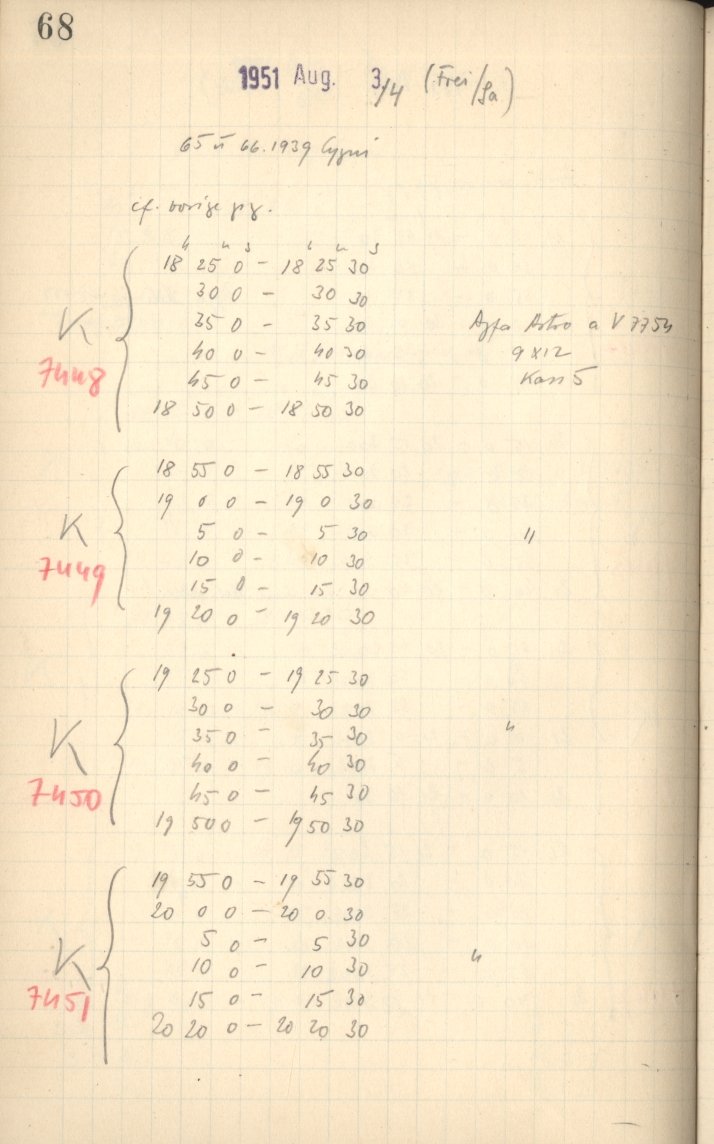 68
1951 Aug. 3/4 (Frei/Sa)
65 u 66.1939 Cygni
cf. vorige pg.
h m s h m s
18 25 0 - 18 25 30
30 0 - 30 30
K 35 0 - 35 30 Agfa Astro a V 7754
7448 40 0 - 40 30 9x12
45 0 - 45 30 Kass 5
18 50 0 - 18 50 30
18 55 0 - 18 55 30
19 0 0 - 19 0 30
K 5 0 - 5 30 "
7449 10 0 - 10 30
15 0 - 15 30
19 20 0 - 19 20 30
19 25 0 - 19 25 30
30 0 - 30 30
K 35 0 - 35 30 "
40 0 - 40 30
7450 45 0 - 45 30
19 50 0 - 19 50 30
19 55 0 - 19 55 30
20 0 0 - 20 0 30
5 0 - 5 30
K 10 0 - 10 30 "
7451 15 0 - 15 30
20 20 0 - 20 20 30